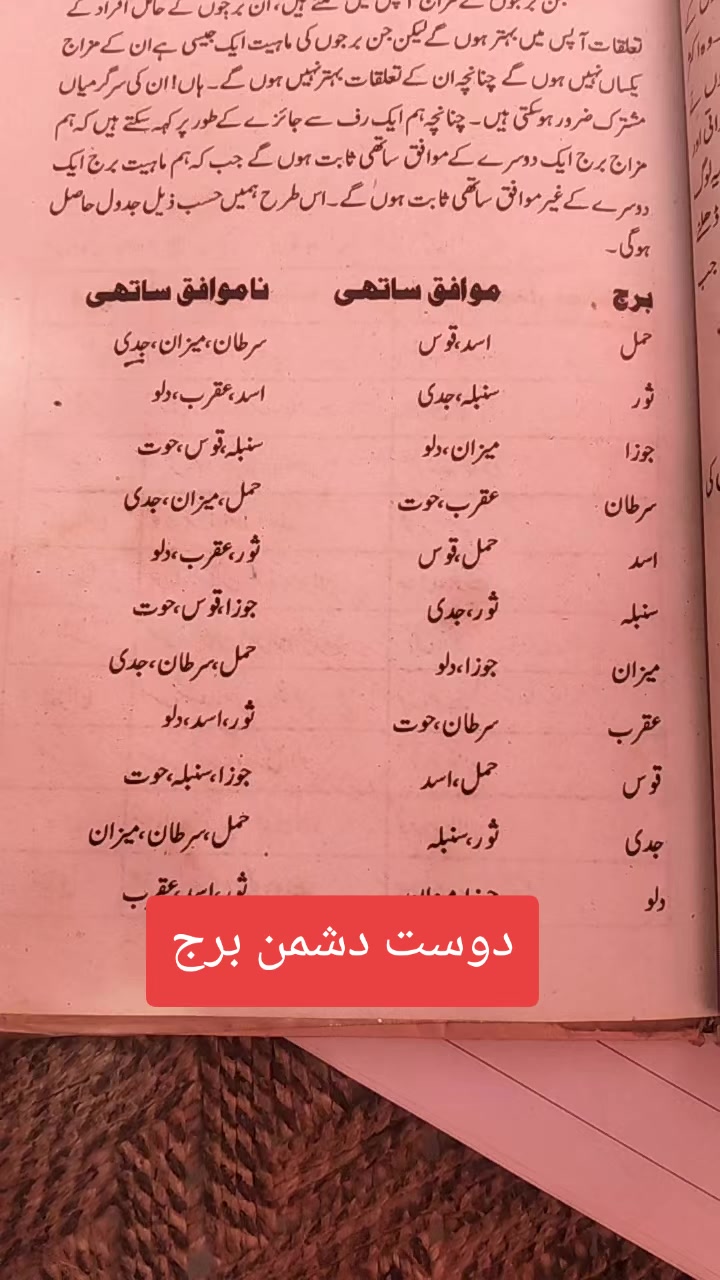 تعلقات آپس میں بہتر ہوں گے لیکن جن برجوں کی ماہیت ایک جیسی ہے ان کے مزاج
یکساں نہیں ہوں گے چنانچہ ان کے تعلقات بہتر نہیں ہوں گے۔ ہاں! ان کی سرگرمیاں
مشترک ضرور ہو سکتی ہیں۔ چنانچہ ہم ایک رف سے جائزے کے طور پر کہہ سکتے ہیں کہ ہم
مزاج برج ایک دوسرے کے موافق ساتھی ثابت ہوں گے جب کہ ہم ماہیت برج ایک
دوسرے کے غیر موافق ساتھی ثابت ہوں گے۔ اس طرح ہمیں حسب ذیل جدول حاصل
ہوگی۔
برج موافق ساتھی ناموافق ساتھی
حمل اسد، قوس سرطان، میزان، جدی
ثور سنبلہ، جدی اسد، عقرب، دلو
جوزا میزان، دلو سنبلہ، قوس، حوت
سرطان عقرب، حوت حمل، میزان، جدی
اسد حمل، قوس ثور، عقرب، دلو
سنبلہ ثور، جدی جوزا، قوس، حوت
میزان جوزا، دلو حمل، سرطان، جدی
عقرب سرطان، حوت ثور، اسد، دلو
قوس حمل، اسد جوزا، سنبلہ، حوت
جدی ثور، سنبلہ حمل، سرطان، میزان
دلو ثور، اسد، عقرب
دوست دشمن برج